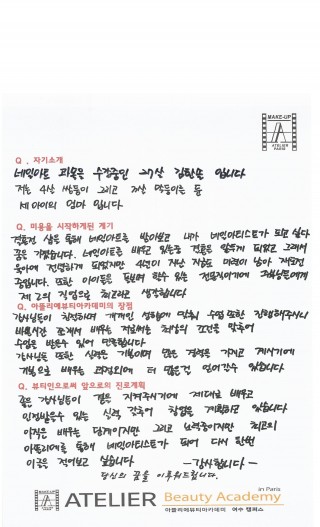 MAKE-UP
ATELIER
PARIS
Q . 자기소개
네일아트 과목은 수강중인 27살 김한솔 입니다
저는 4살 쌍둥이 그리고 2살 막둥이를 둔
세 아이의 엄마 입니다.
Q . 미용을 시작하게된 계기
결혼전 샵을 통해 네일아트를 받아보고 내가 네일아티스트가 되고 싶다
꿈을 가졌습니다. 네일아트를 배우고 있는중 결혼을 일찍하게 되었고 그래서
육아에 전념하게 되었지만 4년이 지난 지금도 미련이 남아 시작
했습니다. 또한 아이들을 돌보며 할수 있는 전문직이기에 주부님들에게
제 2의 직업으로 최고라고 생각합니다
Q . 아뜰리에뷰티아카데미의 장점
강사님들이 친절하며 개개인 성향에 맞춰 수업 또한 진행해주시니
바쁜시간 쪼개서 배우는 저로써는 최상의 조건을 맞춰
수업을 받을수 있어 만족합니다
강사님들 또한 실력은 기본이며 많은 경력을 가지고 계시기에
개념으로 배우는 과정외에 더 많은걸 얻어갈수 있습니다
Q . 뷰티인으로써 앞으로의 진로계획
좋은 강사님들이 많은 지켜주시기에 제대로 배우고
인정받을수 있는 실력 갖추어 창업을 계획하고 있습니다
아직은 배우는 단계이지만 그리고 노력중이지만 최고의
아뜰리에를 통해 네일아티스트가 되어 다시 한번
이곳을 적어보고 싶습니다 - 감사합니다 -
당신의 꿈을 이루워드립니다.
MAKE-UP
ATELIER
PARIS
ATELIER Beauty Academy in Paris
아뜰리에뷰티아카데미 여수 캠퍼스